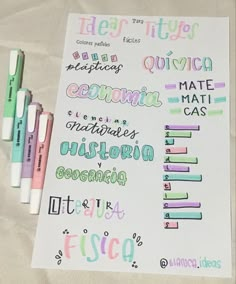 Ideas Para Títulos
Colores pasteles
Fáciles
Artes
plásticas
QUÍMICA
economía
MATE
MATI
CAS
Ciencias
naturales
HISTORIA
Y
GEOGRAFÍA
LITERATURA
FÍSICA